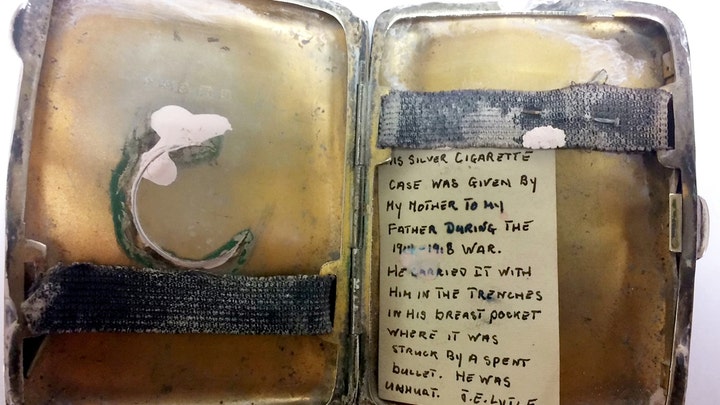 HIS SILVER CIGARETTE
CASE WAS GIVEN BY
MY MOTHER TO MY
FATHER DURING THE
1914-1918 WAR.
HE CARRIED IT WITH
HIM IN THE TRENCHES
IN HIS BREAST POCKET
WHERE IT WAS
STRUCK BY A SPENT
BULLET. HE WAS
UNHURT.